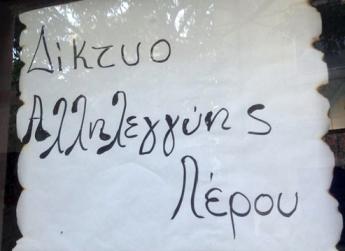 Δίκτυο
Αλληλεγγύης
Πέρου